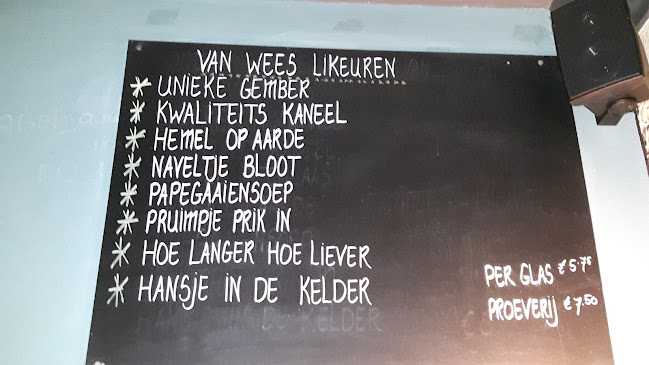 VAN WEES LIKEUREN
* UNIEKE GEMBER
* KWALITEITS KANEEL
* HEMEL OP AARDE
* NAVELTJE BLOOT
* PAPEGAAIENSOEP
* PRUIMPJE PRIK IN
* HOE LANGER HOE LIEVER
* HANSJE IN DE KELDER
PER GLAS € 5.75
PROEVERIJ € 7.50